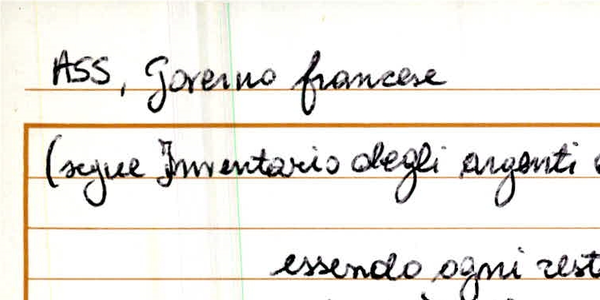 ASS, Governo francese
(segue Inventario degli argenti
essendo ogni rest